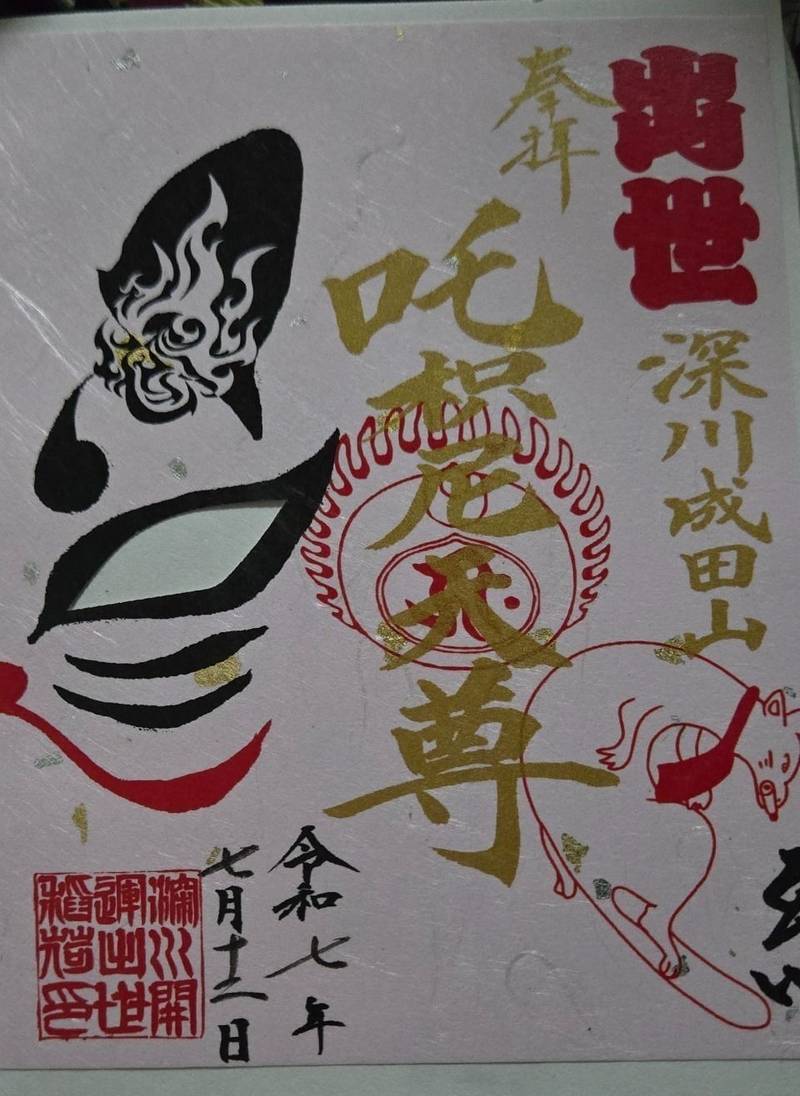 出世
深川成田山
奉拝
吒枳尼天尊
令和七年
七月十二日
深川開
運出世
稲荷印